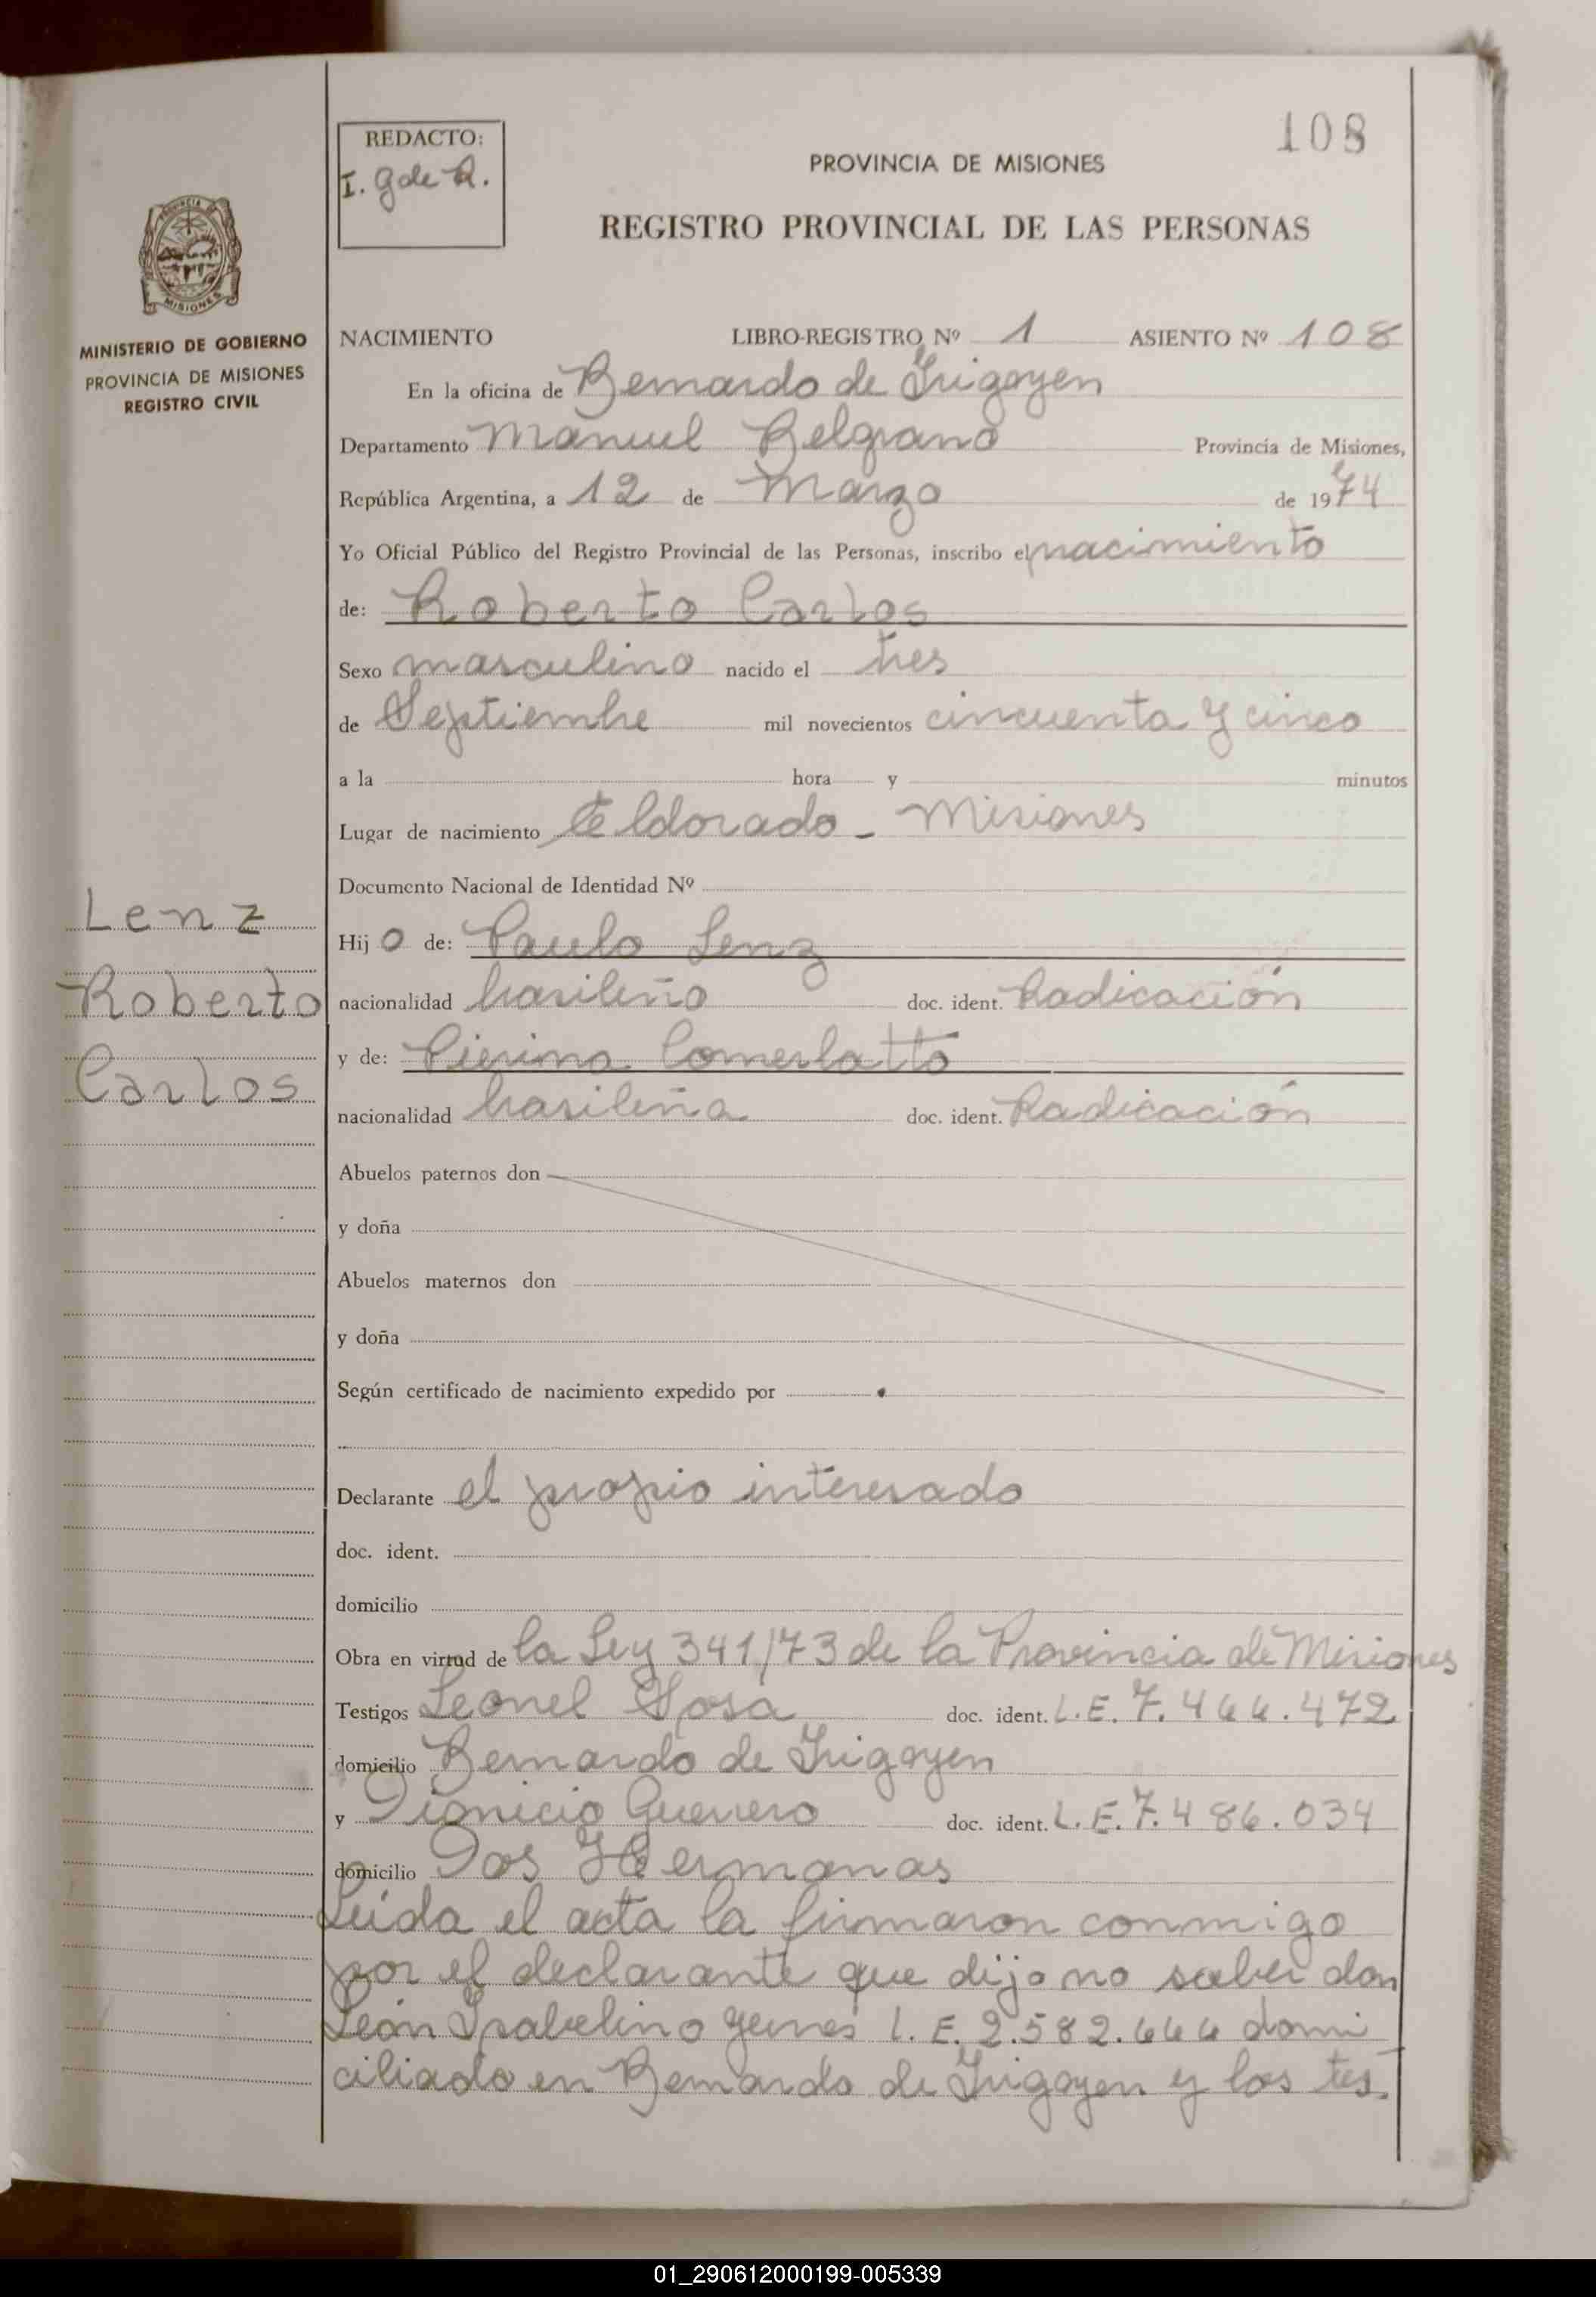 108
REDACTO:
I. G de R.
PROVINCIA DE MISIONES
REGISTRO PROVINCIAL DE LAS PERSONAS
PROVINCIA DE MISIONES
MINISTERIO DE GOBIERNO
PROVINCIA DE MISIONES
REGISTRO CIVIL
NACIMIENTO LIBRO-REGISTRO Nº 1 ASIENTO Nº 108
En la oficina de Bernardo de Irigoyen
Departamento Manuel Belgrano Provincia de Misiones,
República Argentina, a 12 de Marzo de 1974
Yo Oficial Público del Registro Provincial de las Personas, inscribo el nacimiento
de: Roberto Carlos
Sexo masculino nacido el tres
de Septiembre mil novecientos cincuenta y cinco
a la hora y minutos
Lugar de nacimiento Eldorado - Misiones
Documento Nacional de Identidad Nº
Lenz
Roberto
Carlos
Hijo de: Paulo Lenz
nacionalidad brasileño doc. ident. Radicación
y de: Pierina Comerlatto
nacionalidad brasileña doc. ident. Radicación
Abuelos paternos don
y doña
Abuelos maternos don
y doña
Según certificado de nacimiento expedido por
Declarante el propio interesado
doc. ident.
domicilio
Obra en virtud de la Ley 341/73 de la Provincia de Misiones
Testigos Leonel Sosa doc. ident. L.E. 7.466.472
domicilio Bernardo de Irigoyen
y Dionicio Guerrero doc. ident. L.E. 7.486.034
domicilio Dos Hermanas
Leída el acta la firmaron conmigo
por el declarante que dijo no saber don
León Isabelino L.E. 2.582.666 domi
ciliado en Bernardo de Irigoyen y los tes
01_290612000199-005339